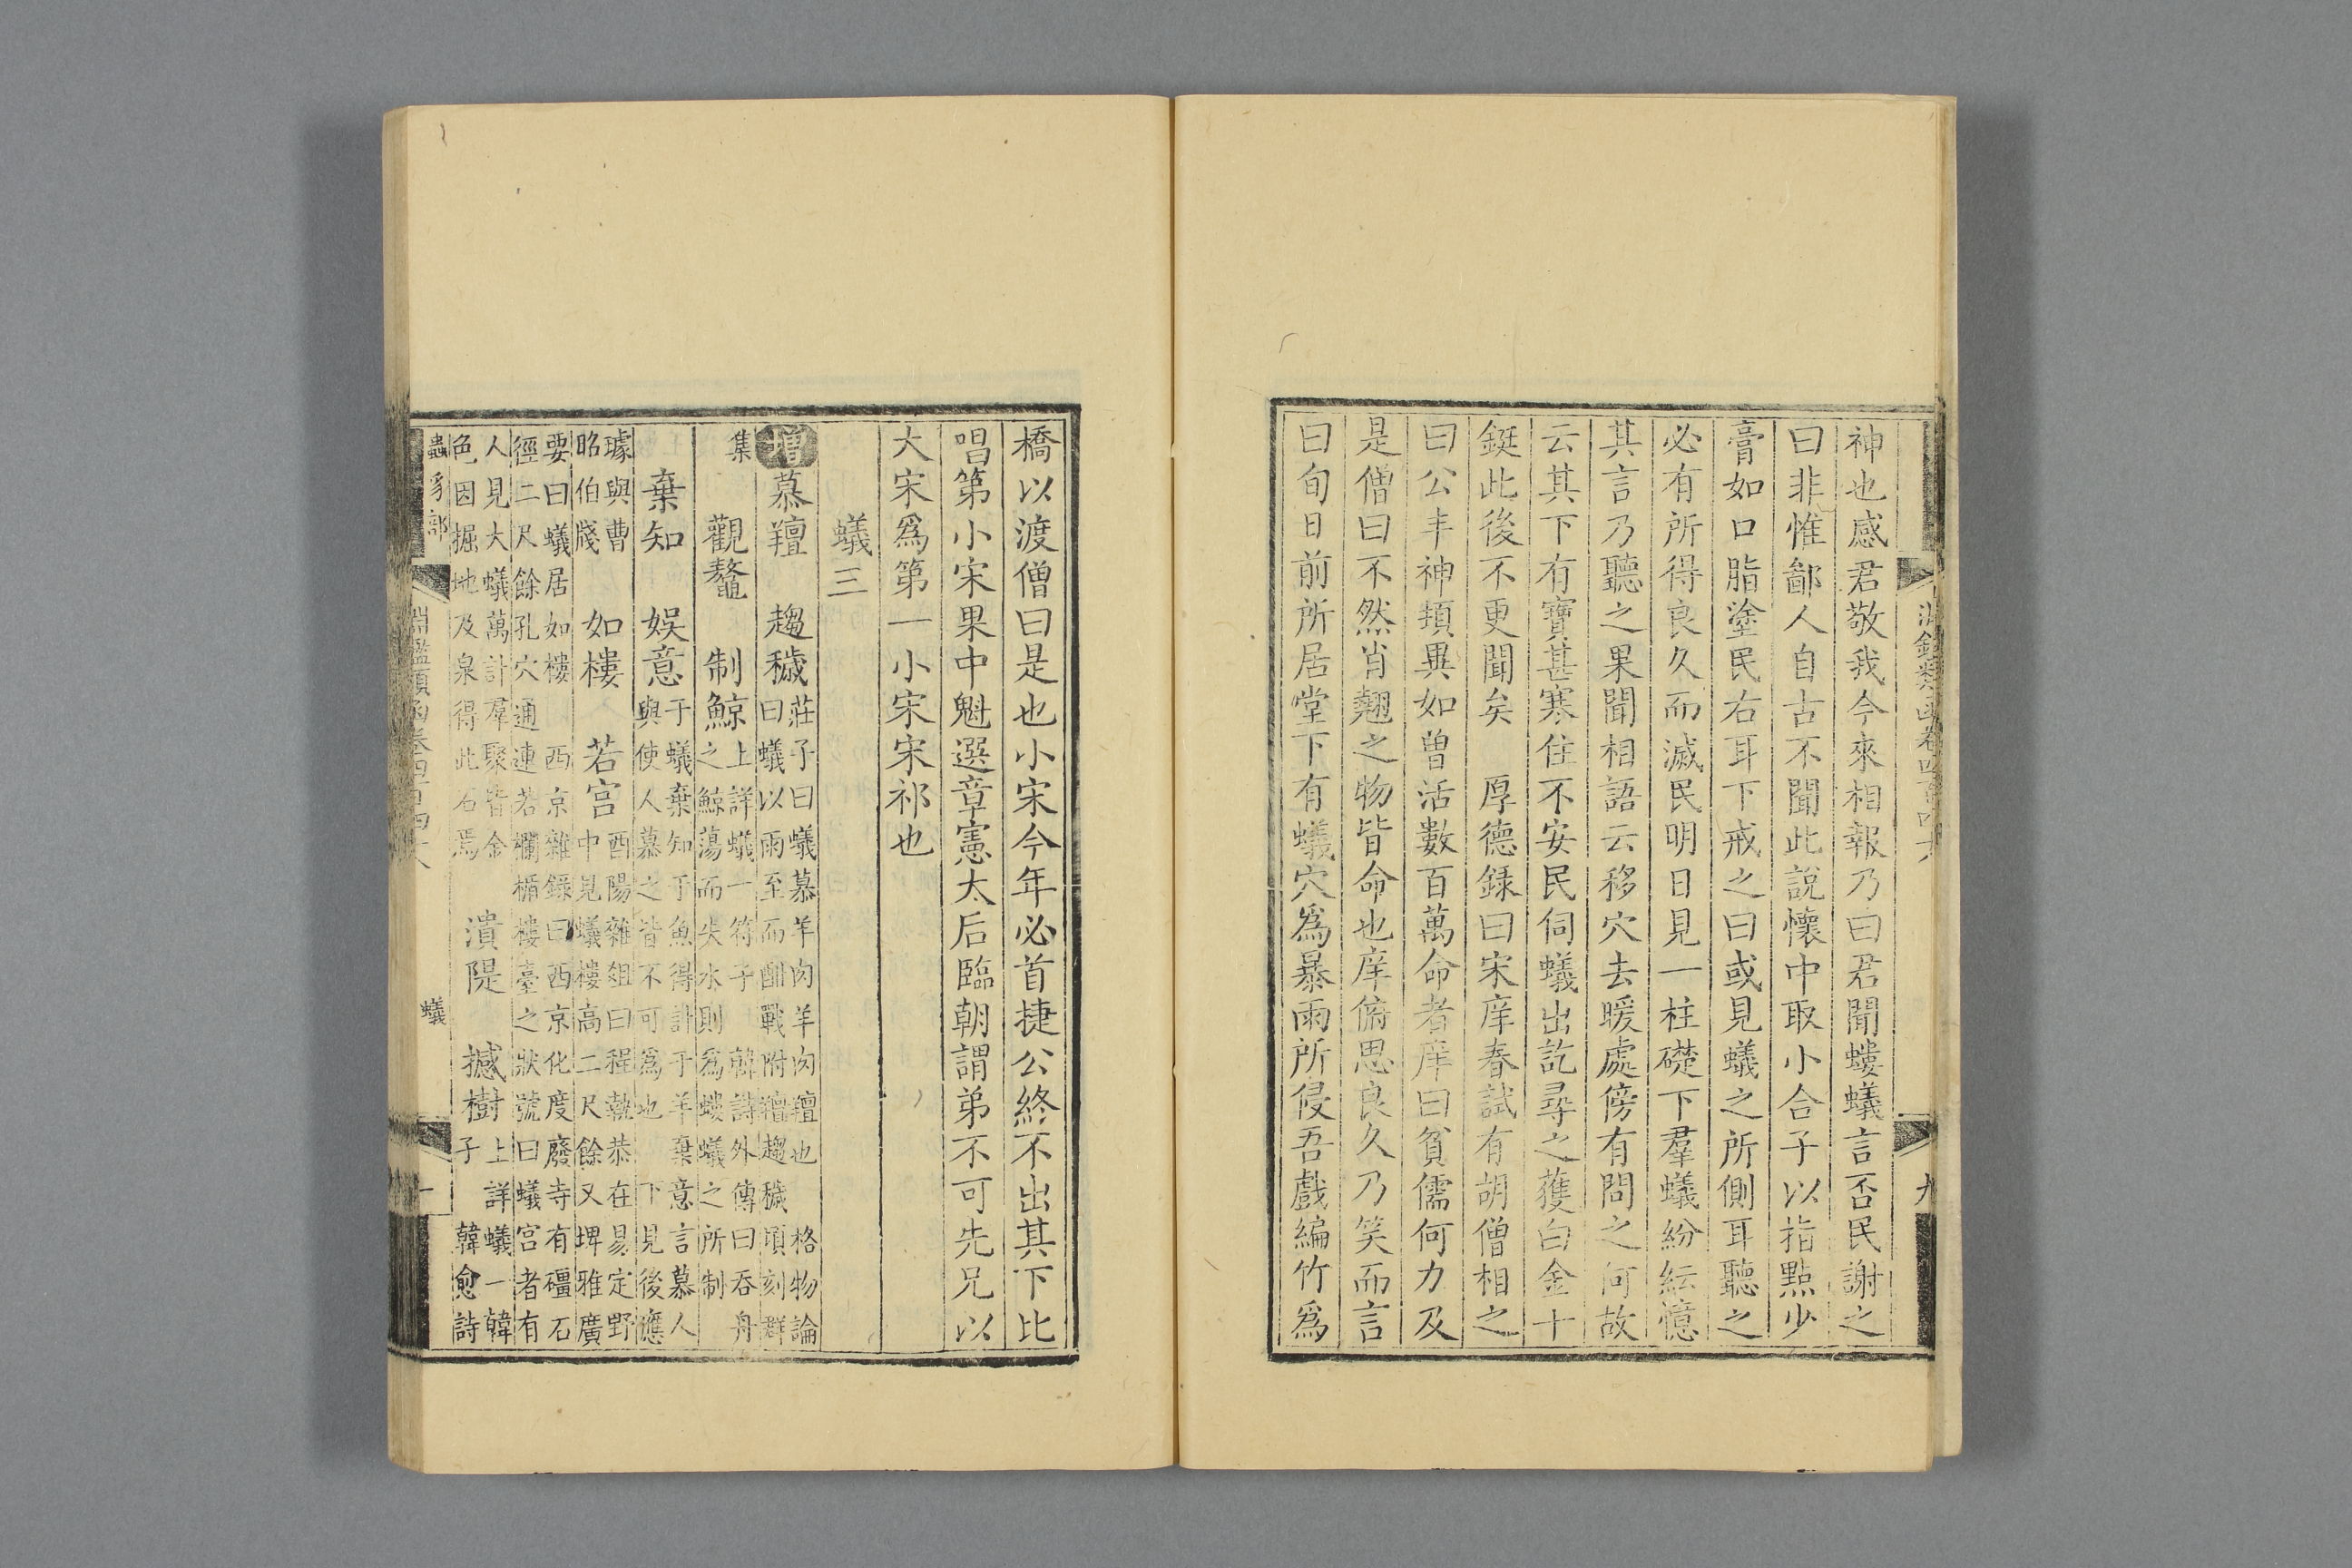 淵鑑類函卷四百四十八
九
神也感君敬我今來相報乃曰君聞螻蟻言否民謝之
曰非惟鄙人自古不聞此說懷中取小合子以指點少
膏如口脂塗民右耳下戒之曰或見蟻之所側耳聽之
必有所得良久而滅民明日見一柱礎下羣蟻紛紜憶
其言乃聽之果聞相語云移穴去暖處傍有問之何故
云其下有寶甚寒住不安民伺蟻出訖尋之獲白金十
鋌此後不更聞矣 厚德錄曰宋庠春試有胡僧相之
曰公丰神頓異如曾活數百萬命者庠曰貧儒何力及
是僧曰不然肖翹之物皆命也庠俯思良久乃笑而言
曰旬日前所居堂下有蟻穴爲暴雨所侵吾戲編竹爲
橋以渡僧曰是也小宋今年必首捷公終不出其下比
唱第小宋果中魁選章憲太后臨朝謂弟不可先兄以
大宋爲第一小宋宋祁也
蟻三
增慕羶 趨穢莊子曰蟻慕羊肉羊肉羶也 格物論
曰蟻以雨至而酣戰附羶趨穢頃刻群
集 觀鼇 制鯨上詳蟻一符子 韓詩外傳曰吞舟
之鯨蕩而失水則爲螻蟻之所制
棄知 娛意于蟻棄知于魚得計于羊棄意言慕人
與使人慕之皆不可爲也 下見後應
璩與曹
昭伯牋 如樓 若宮酉陽雜俎曰程執恭在易定野
中見蟻樓高二尺餘又埤雅廣
要曰蟻居如樓 西京雜錄曰西京化度廢寺有礓石
徑二尺餘孔穴通連若欄楯樓臺之狀號曰蟻宮者有
人見大蟻萬計羣聚皆金
色因掘地及泉得此石焉 潰隄 撼樹上詳蟻一韓
子 韓愈詩
蟲豸部
淵鑑類函卷四百四十八
蟻
十